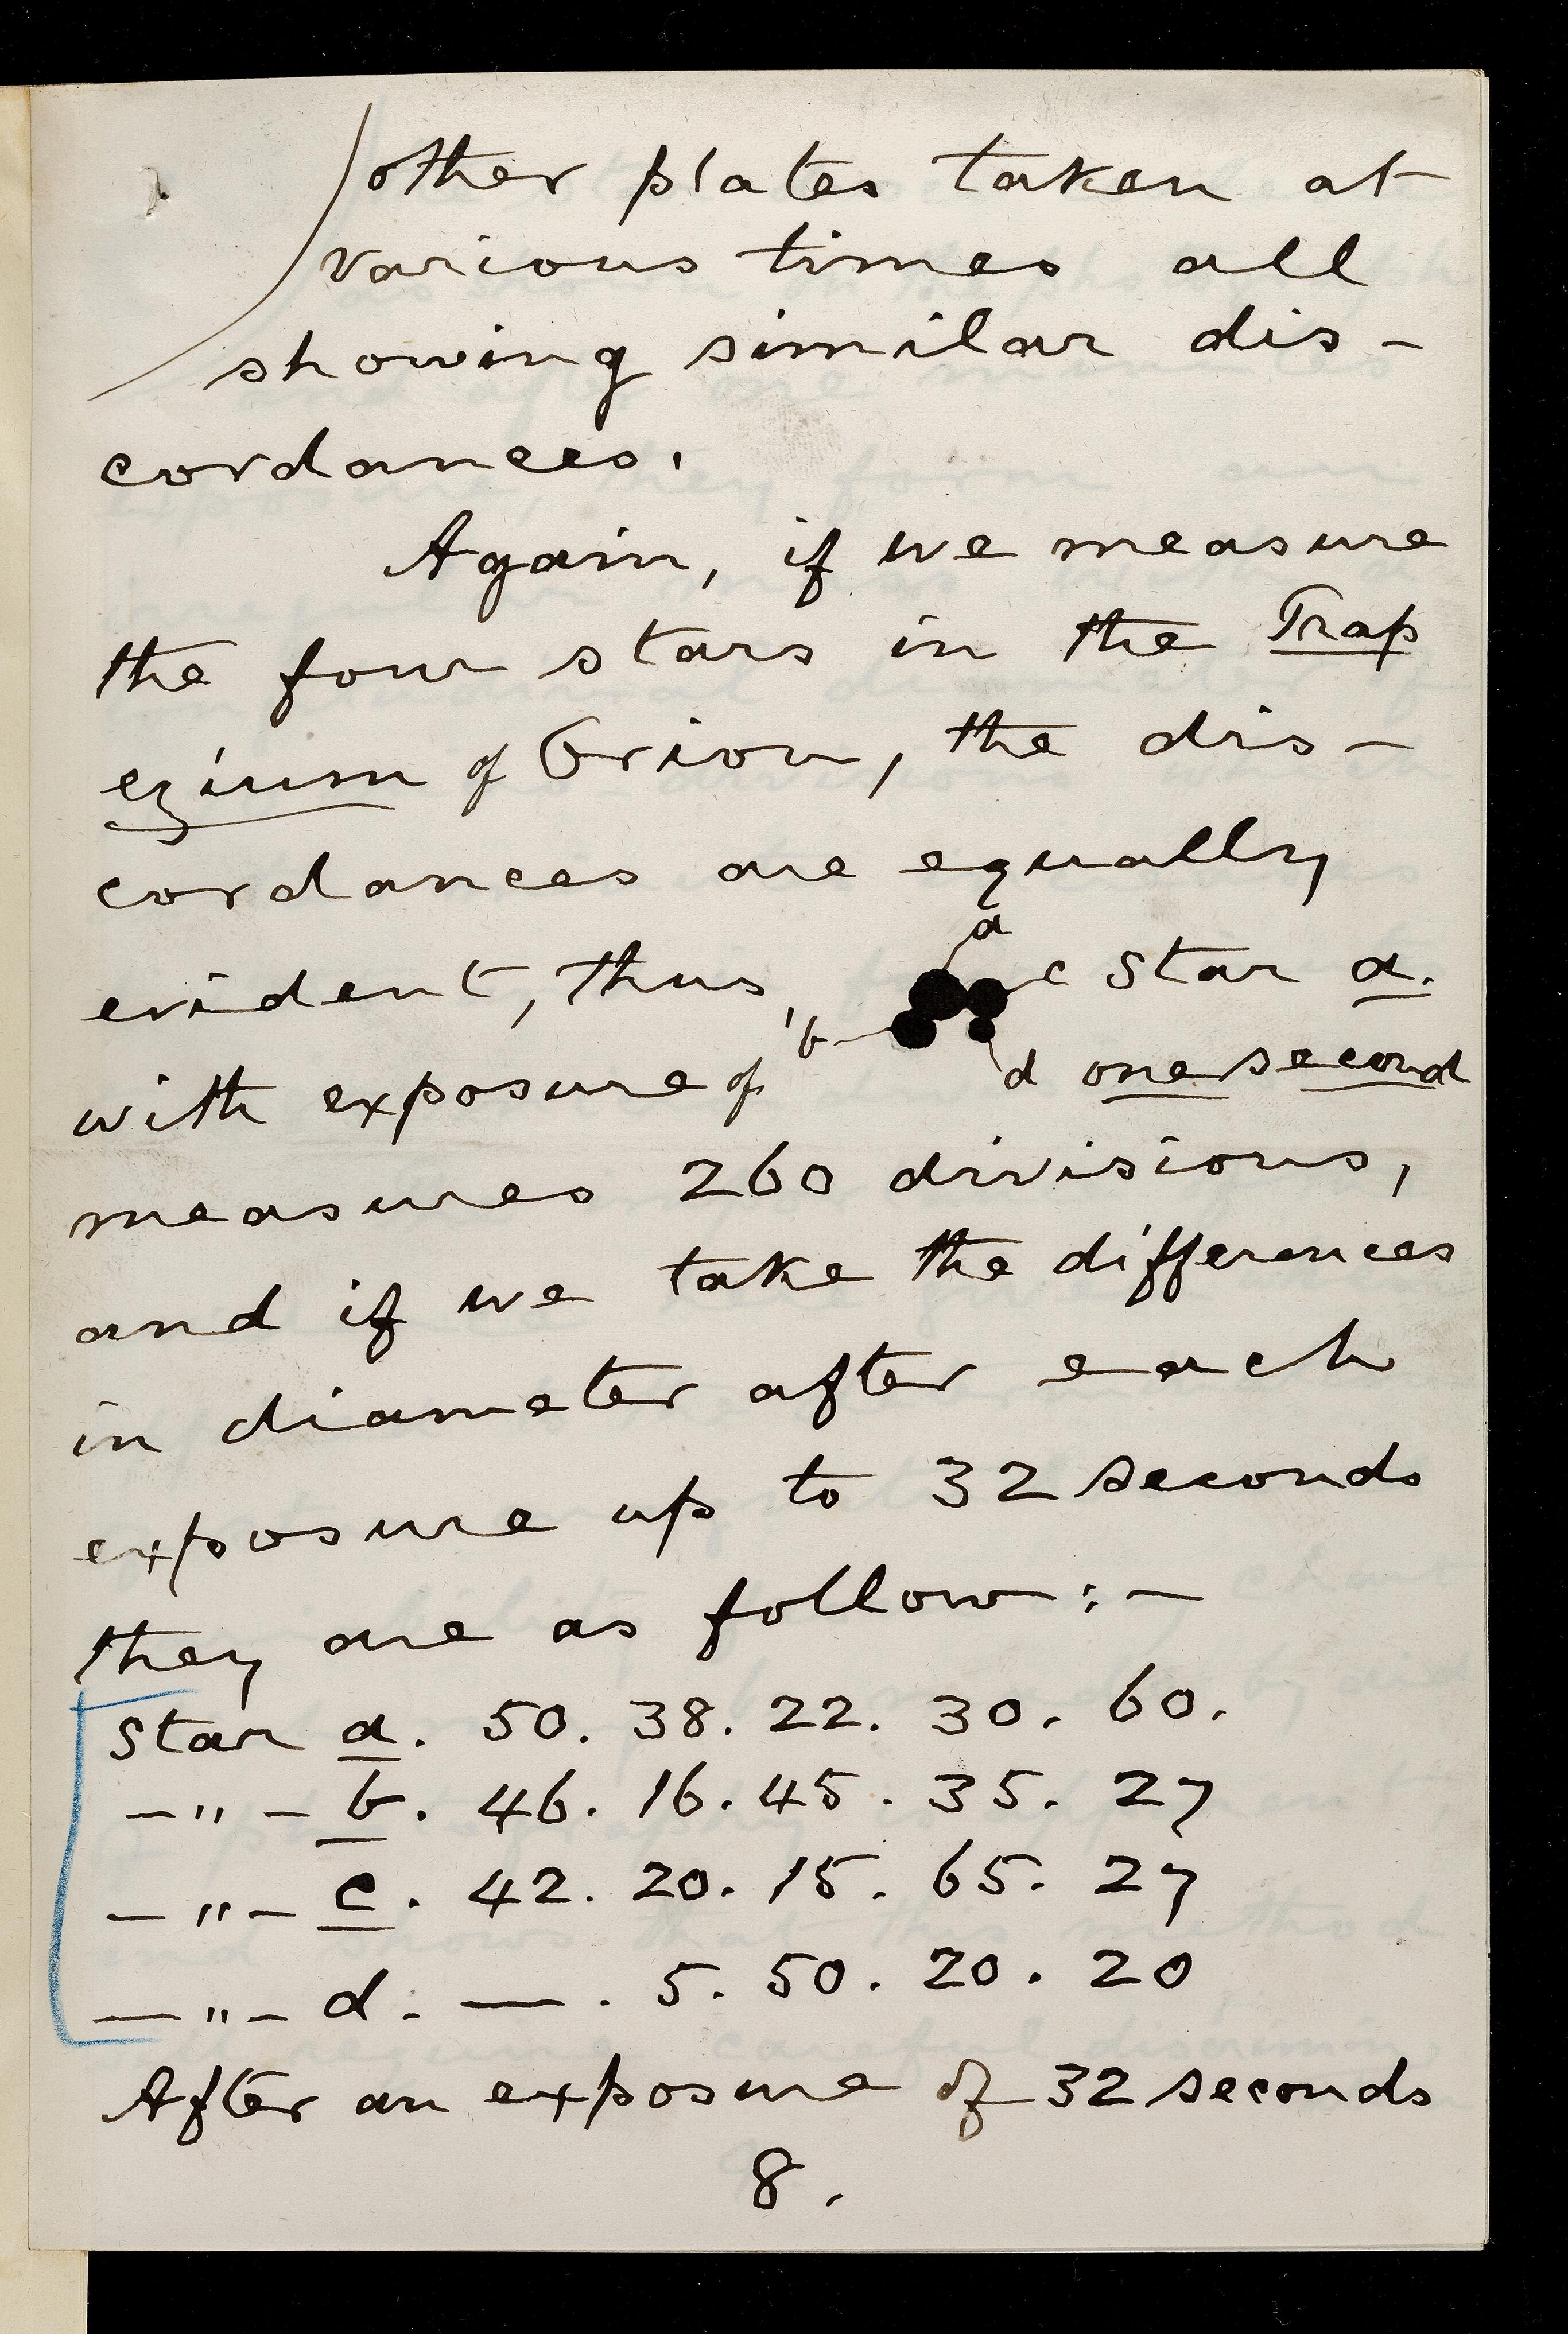 other plates taken at
various times all
showing similar dis-
cordances.
Again, if we measure
the four stars in the Trap
ezium of Orion, the dis-
cordances are equally
a
evident, thus, c Star a.
with exposure of b d one second
measures 260 divisions,
and if we take the differences
in diameter after each
exposure up to 32 seconds
they are as follow:-
Star a. 50. 38. 22. 30. 60.
-"- b. 46. 16. 45. 35. 27
-"- c. 42. 20. 15. 65. 27
-"- d. -. 5. 50. 20. 20
After an exposure of 32 seconds
8.